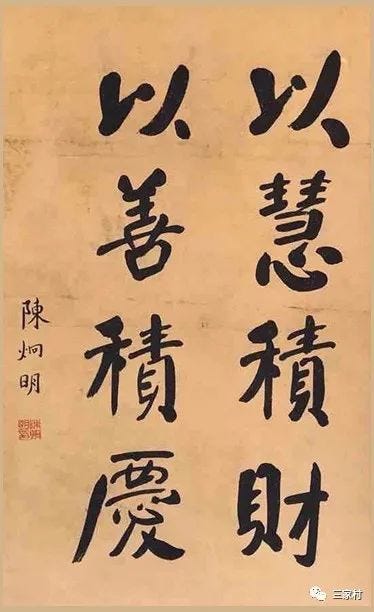 以慧積財
以善積慶
陳炯明
三家村